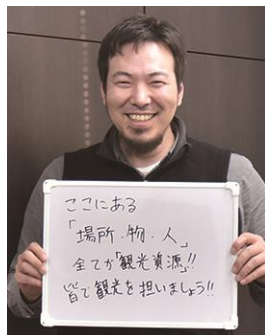 ここにある
「場所・物・人」
全てが「観光資源」!!
皆で観光を担いましょう!!